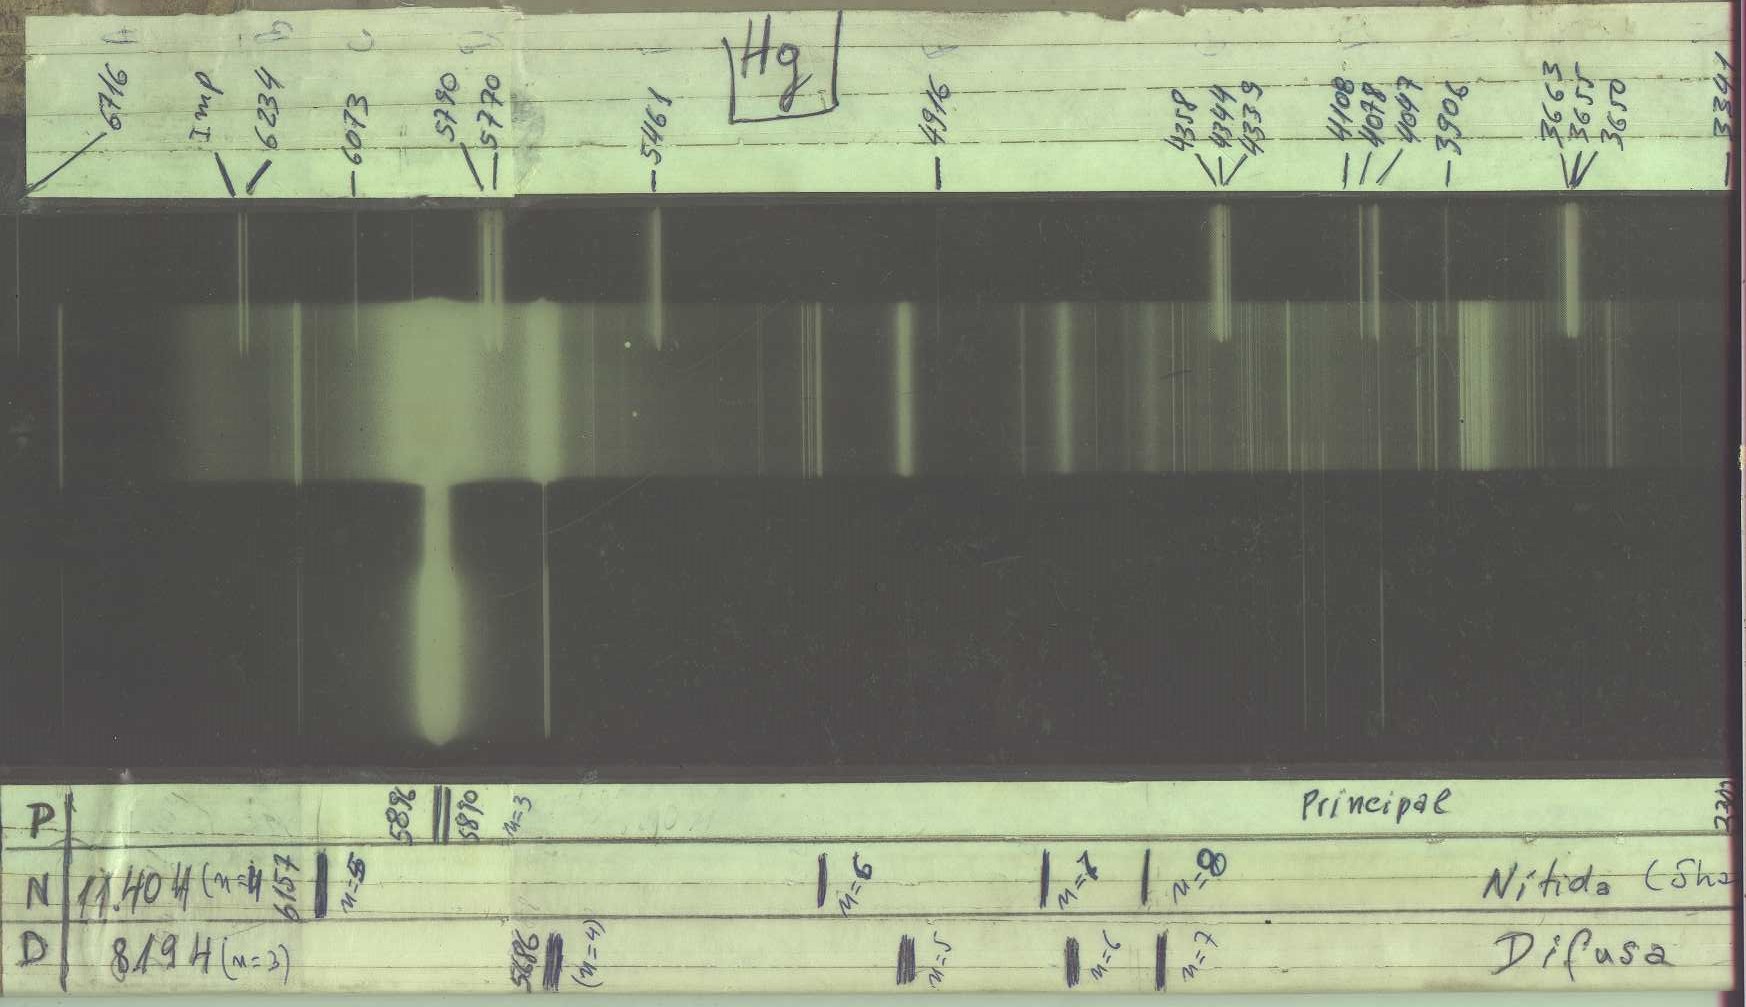 6716
Imp
6234
6073
5790
5770
5461
Hg
4916
4358
4344
4339
4108
4078
4047
3906
3663
3655
3650
3341
P 5896 5890 n=3 Principal
N 11.404 (n=4 6157 n=5 n=6 n=7 n=8 Nítida (Sha
D 8194 (n=3) 5686 (n=4) n=5 n=6 n=7 Difusa